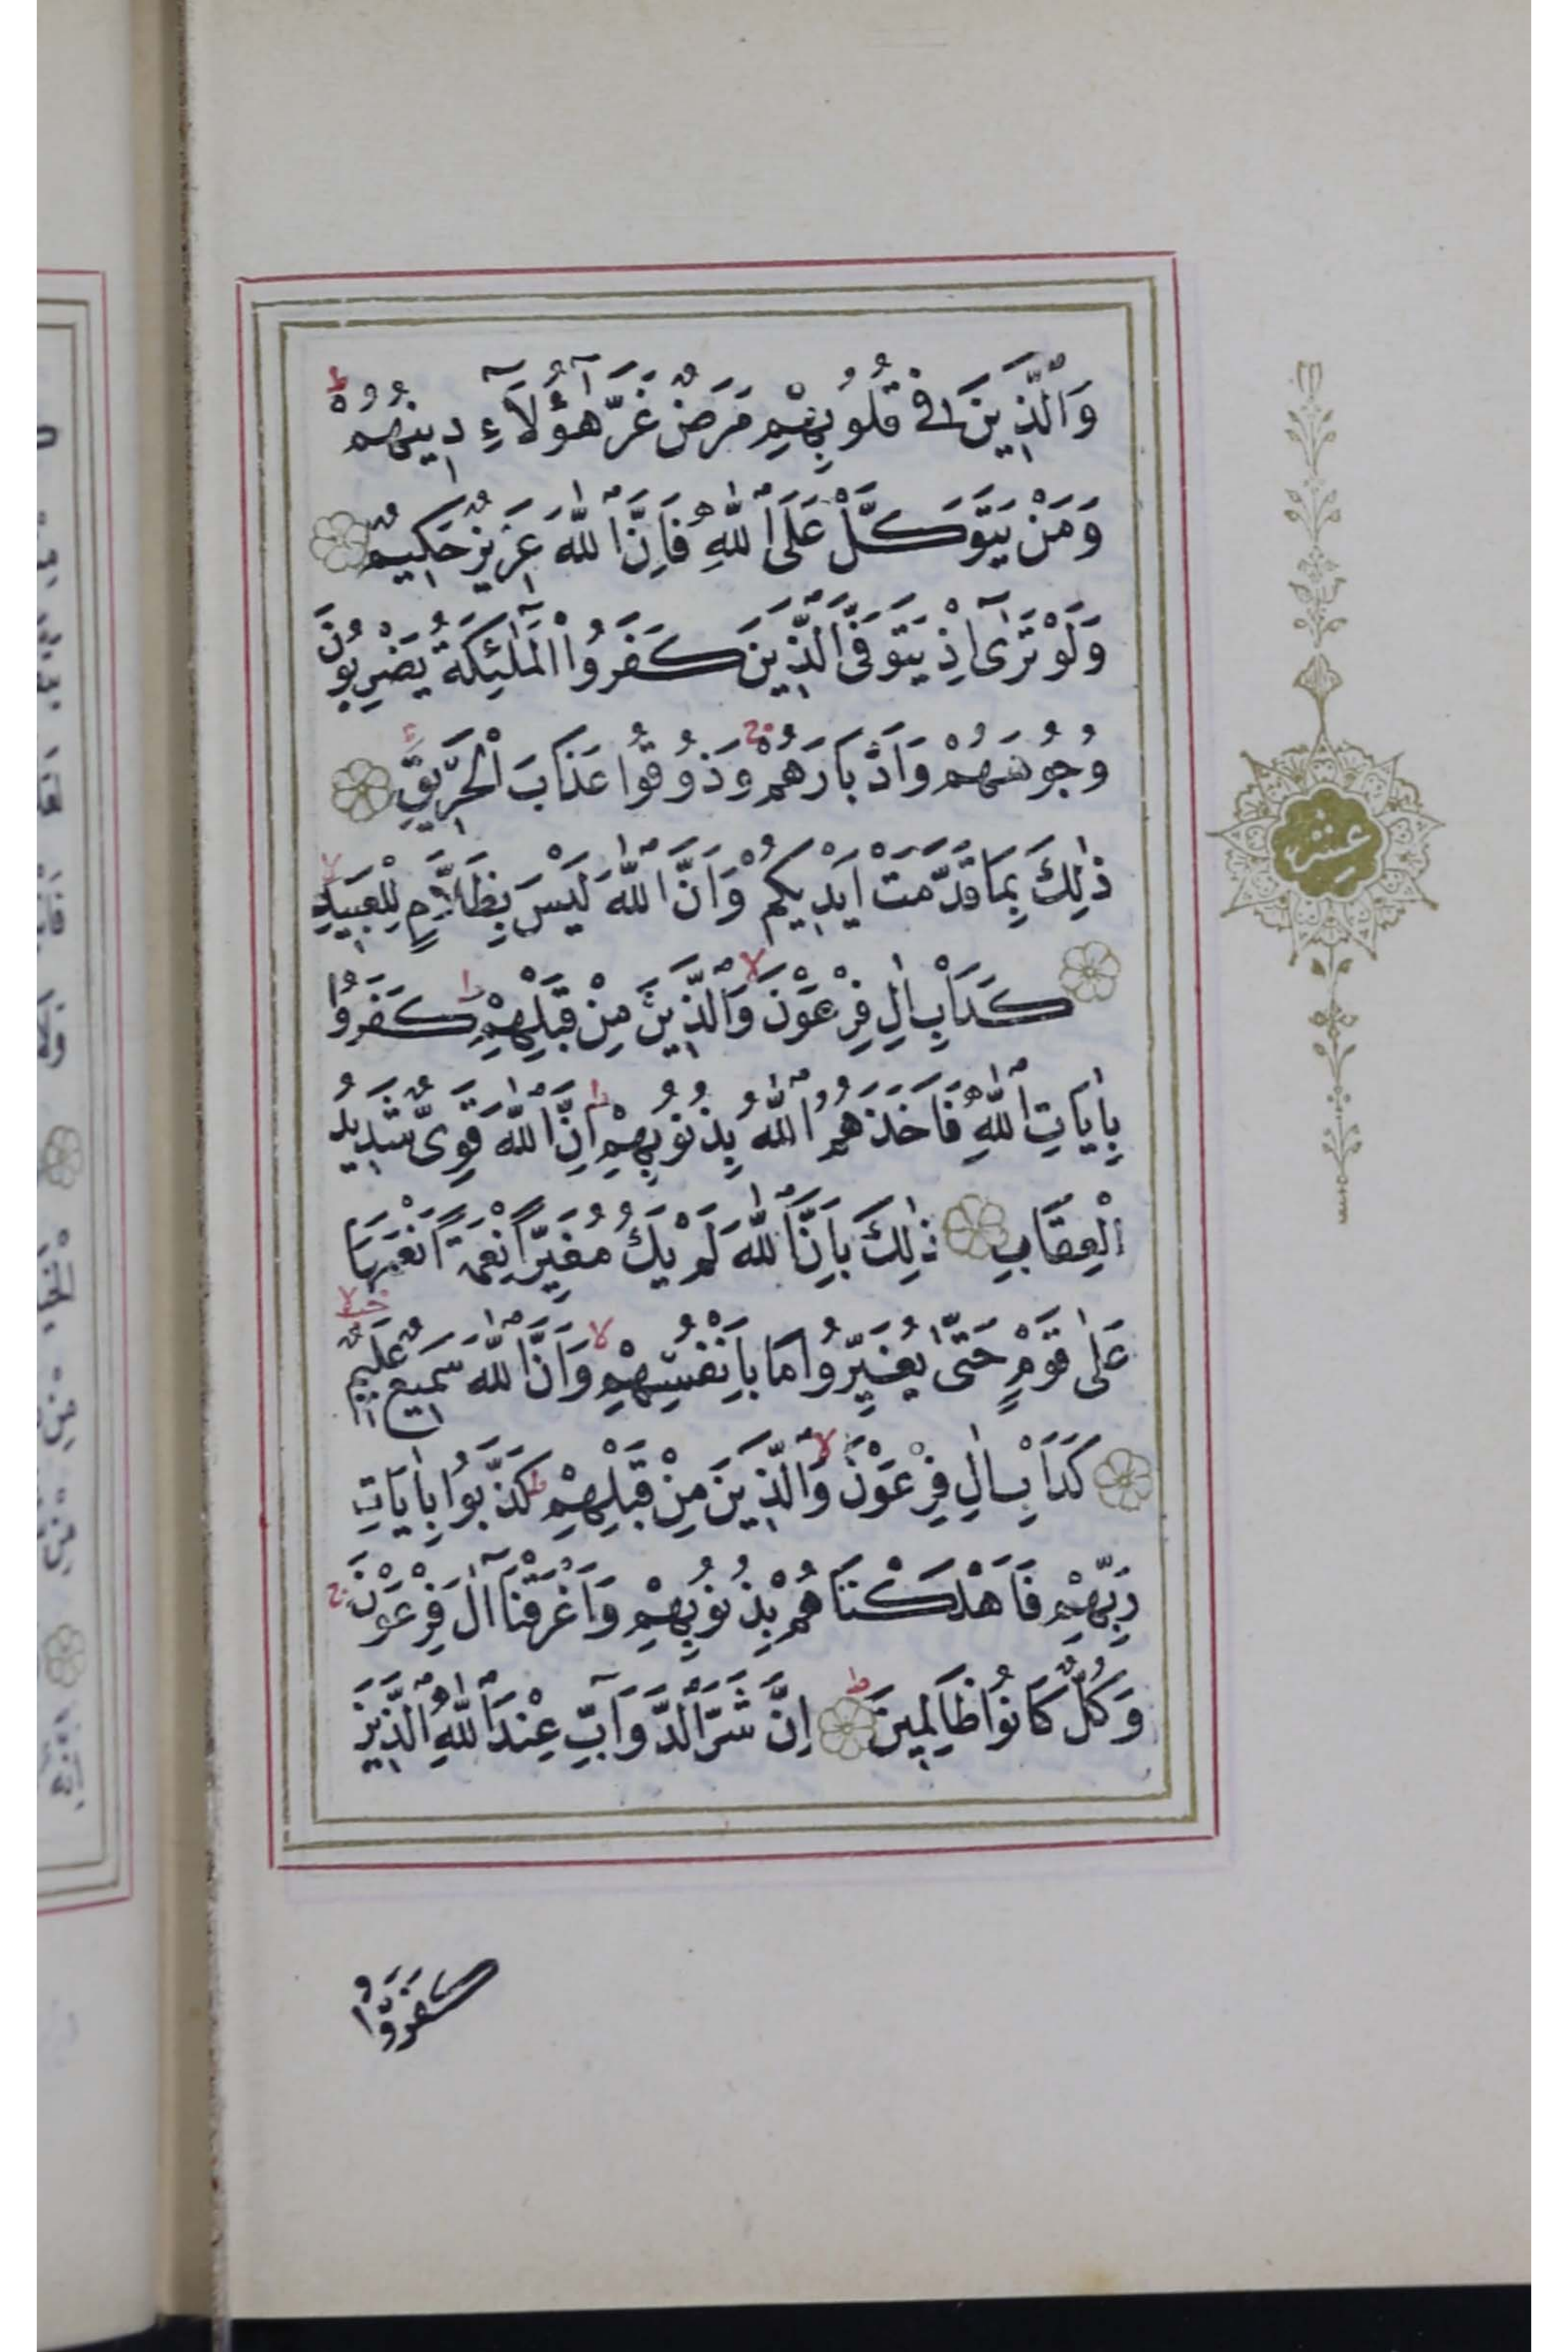 وَالَّذِينَ فِي قُلُوبِهِمْ مَرَضٌ غَرَّ هٰٓؤُلَآءِ دِينُهُمْ ط
وَمَنْ يَتَوَكَّلْ عَلَى اللّٰهِ فَاِنَّ اللّٰهَ عَزِيزٌ حَكِيمٌ
وَلَوْ تَرٰٓى اِذْ يَتَوَفَّى الَّذِينَ كَفَرُوا الْمَلٰٓئِكَةُ يَضْرِبُونَ
وُجُوهَهُمْ وَاَدْبَارَهُمْ ج وَذُوقُوا عَذَابَ الْحَرِيقِ
ذٰلِكَ بِمَا قَدَّمَتْ اَيْدِيكُمْ وَاَنَّ اللّٰهَ لَيْسَ بِظَلَّامٍ لِلْعَبِيدِ لا
كَدَاْبِ اٰلِ فِرْعَوْنَ لا وَالَّذِينَ مِنْ قَبْلِهِمْ ط كَفَرُوا
بِاٰيَاتِ اللّٰهِ فَاَخَذَهُمُ اللّٰهُ بِذُنُوبِهِمْ ط اِنَّ اللّٰهَ قَوِىٌّ شَدِيدُ
الْعِقَابِ ذٰلِكَ بِاَنَّ اللّٰهَ لَمْ يَكُ مُغَيِّرًا نِعْمَةً اَنْعَمَهَا
عَلٰى قَوْمٍ حَتّٰى يُغَيِّرُوا مَا بِاَنْفُسِهِمْ لا وَاَنَّ اللّٰهَ سَمِيعٌ عَلِيمٌ لا
كَدَاْبِ اٰلِ فِرْعَوْنَ لا وَالَّذِينَ مِنْ قَبْلِهِمْ ط كَذَّبُوا بِاٰيَاتِ
رَبِّهِمْ فَاَهْلَكْنَاهُمْ بِذُنُوبِهِمْ وَاَغْرَقْنَآ اٰلَ فِرْعَوْنَ ج
وَكُلٌّ كَانُوا ظَالِمِينَ ط اِنَّ شَرَّ الدَّوَآبِّ عِنْدَ اللّٰهِ الَّذِينَ
كَفَرُوا
عشر